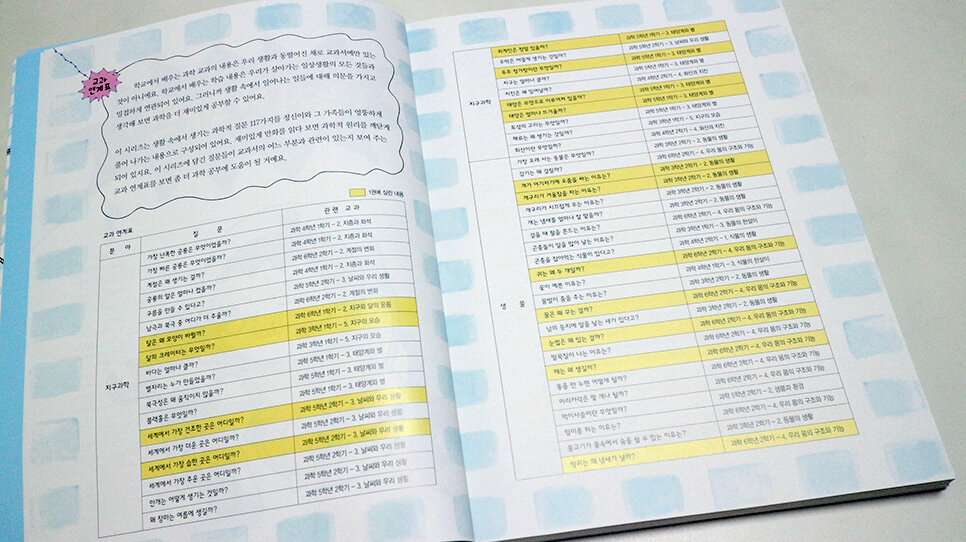 교과
연계표
학교에서 배우는 과학 교과의 내용은 우리 생활과 동떨어진 채로 교과서에만 있는
것이 아니에요. 학교에서 배우는 학습 내용은 우리가 살아가는 일상생활의 모든 것들과
밀접하게 연관되어 있어요. 그러니까 생활 속에서 일어나는 일들에 대해 의문을 가지고
생각해 보면 과학을 더 재미있게 공부할 수 있어요.
이 시리즈는 생활 속에서 생기는 과학적 질문 117가지를 정신이와 그 가족들이 엉뚱하게
풀어 나가는 내용으로 구성되어 있어요. 재미있게 만화를 읽다 보면 과학적 원리를 깨닫게
되어 있지요. 이 시리즈에 담긴 질문들이 교과서의 어느 부분과 관련이 있는지 보여 주는
교과 연계표를 보면 좀 더 과학 공부에 도움이 될 거예요.
1권에 실린 내용
교과 연계표
분 야 질 문 관 련 교 과
지구과학
가장 난폭한 공룡은 무엇이었을까? 과학 4학년 1학기 – 2. 지층과 화석
가장 빠른 공룡은 무엇이었을까? 과학 4학년 1학기 – 2. 지층과 화석
계절은 왜 생기는 걸까? 과학 6학년 2학기 – 2. 계절의 변화
공룡의 알은 얼마나 컸을까? 과학 4학년 1학기 – 2. 지층과 화석
구름을 만들 수 있다고? 과학 5학년 2학기 – 3. 날씨와 우리 생활
남극과 북극 중 어디가 더 추울까? 과학 6학년 2학기 – 2. 계절의 변화
달은 왜 모양이 바뀔까? 과학 6학년 1학기 – 2. 지구와 달의 운동
달의 크레이터는 무엇일까? 과학 3학년 1학기 – 5. 지구의 모습
바다는 얼마나 클까? 과학 3학년 1학기 – 5. 지구의 모습
별자리는 누가 만들었을까? 과학 5학년 1학기 – 3. 태양계와 별
북극성은 왜 움직이지 않을까? 과학 5학년 1학기 – 3. 태양계와 별
블랙홀은 무엇일까? 과학 5학년 1학기 – 3. 태양계와 별
세계에서 가장 건조한 곳은 어디일까? 과학 5학년 2학기 – 3. 날씨와 우리 생활
세계에서 가장 더운 곳은 어디일까? 과학 5학년 2학기 – 3. 날씨와 우리 생활
세계에서 가장 습한 곳은 어디일까? 과학 5학년 2학기 – 3. 날씨와 우리 생활
세계에서 가장 추운 곳은 어디일까? 과학 5학년 2학기 – 3. 날씨와 우리 생활
안개는 어떻게 생기는 것일까? 과학 5학년 2학기 – 3. 날씨와 우리 생활
왜 장마는 여름에 생길까? 과학 5학년 2학기 – 3. 날씨와 우리 생활
지구과학
외계인은 정말 있을까? 과학 5학년 1학기 – 3. 태양계와 별
우박은 어떻게 생기는 것일까? 과학 5학년 2학기 – 3. 날씨와 우리 생활
우주 정거장이란 무엇일까? 과학 5학년 1학기 – 3. 태양계와 별
지구는 얼마나 클까?
지진은 왜 일어날까? 과학 4학년 2학기 – 4. 화산과 지진
태양은 무엇으로 이루어져 있을까? 과학 5학년 1학기 – 3. 태양계와 별
태양은 얼마나 뜨거울까? 과학 5학년 1학기 – 3. 태양계와 별
토성의 고리는 무엇일까? 과학 5학년 1학기 – 3. 태양계와 별
파도는 왜 생기는 걸까? 과학 3학년 1학기 – 5. 지구의 모습
화산이란 무엇일까? 과학 4학년 2학기 – 4. 화산과 지진
생 물
가장 오래 사는 동물은 무엇일까? 과학 3학년 2학기 – 2. 동물의 생활
감기는 왜 걸릴까? 과학 6학년 2학기 – 4. 우리 몸의 구조와 기능
개가 여기저기에 오줌을 싸는 이유는? 과학 3학년 2학기 – 2. 동물의 생활
개구리가 겨울잠을 자는 이유는? 과학 3학년 2학기 – 2. 동물의 생활
개구리가 시끄럽게 우는 이유는? 과학 3학년 2학기 – 2. 동물의 생활
개는 냄새를 얼마나 잘 맡을까? 과학 3학년 2학기 – 2. 동물의 생활
걸을 때 팔을 흔드는 이유는? 과학 6학년 2학기 – 4. 우리 몸의 구조와 기능
곤충들이 알을 많이 낳는 이유는? 과학 3학년 1학기 – 3. 동물의 한살이
곤충을 잡아먹는 식물이 있다고? 과학 4학년 2학기 – 1. 식물의 생활
귀는 왜 두 개일까? 과학 6학년 2학기 – 4. 우리 몸의 구조와 기능
꽃이 예쁜 이유는? 과학 4학년 1학기 – 3. 식물의 한살이
꿀벌이 춤을 추는 이유는? 과학 3학년 2학기 – 2. 동물의 생활
꿈은 왜 꾸는 걸까? 과학 6학년 2학기 – 4. 우리 몸의 구조와 기능
남의 둥지에 알을 낳는 새가 있다고? 과학 3학년 2학기 – 2. 동물의 생활
눈썹은 왜 있는 걸까? 과학 6학년 2학기 – 4. 우리 몸의 구조와 기능
딸꾹질이 나는 이유는? 과학 6학년 2학기 – 4. 우리 몸의 구조와 기능
때는 왜 생길까? 과학 6학년 2학기 – 4. 우리 몸의 구조와 기능
똥을 안 누면 어떻게 될까? 과학 6학년 2학기 – 4. 우리 몸의 구조와 기능
머리카락은 몇 개나 될까? 과학 6학년 2학기 – 4. 우리 몸의 구조와 기능
먹이사슬이란 무엇일까? 과학 5학년 2학기 – 2. 생물과 환경
멀미를 하는 이유는? 과학 6학년 2학기 – 4. 우리 몸의 구조와 기능
물고기가 물속에서 숨을 쉴 수 있는 이유는? 과학 3학년 2학기 – 2. 동물의 생활
방귀는 왜 냄새가 날까? 과학 6학년 2학기 – 4. 우리 몸의 구조와 기능